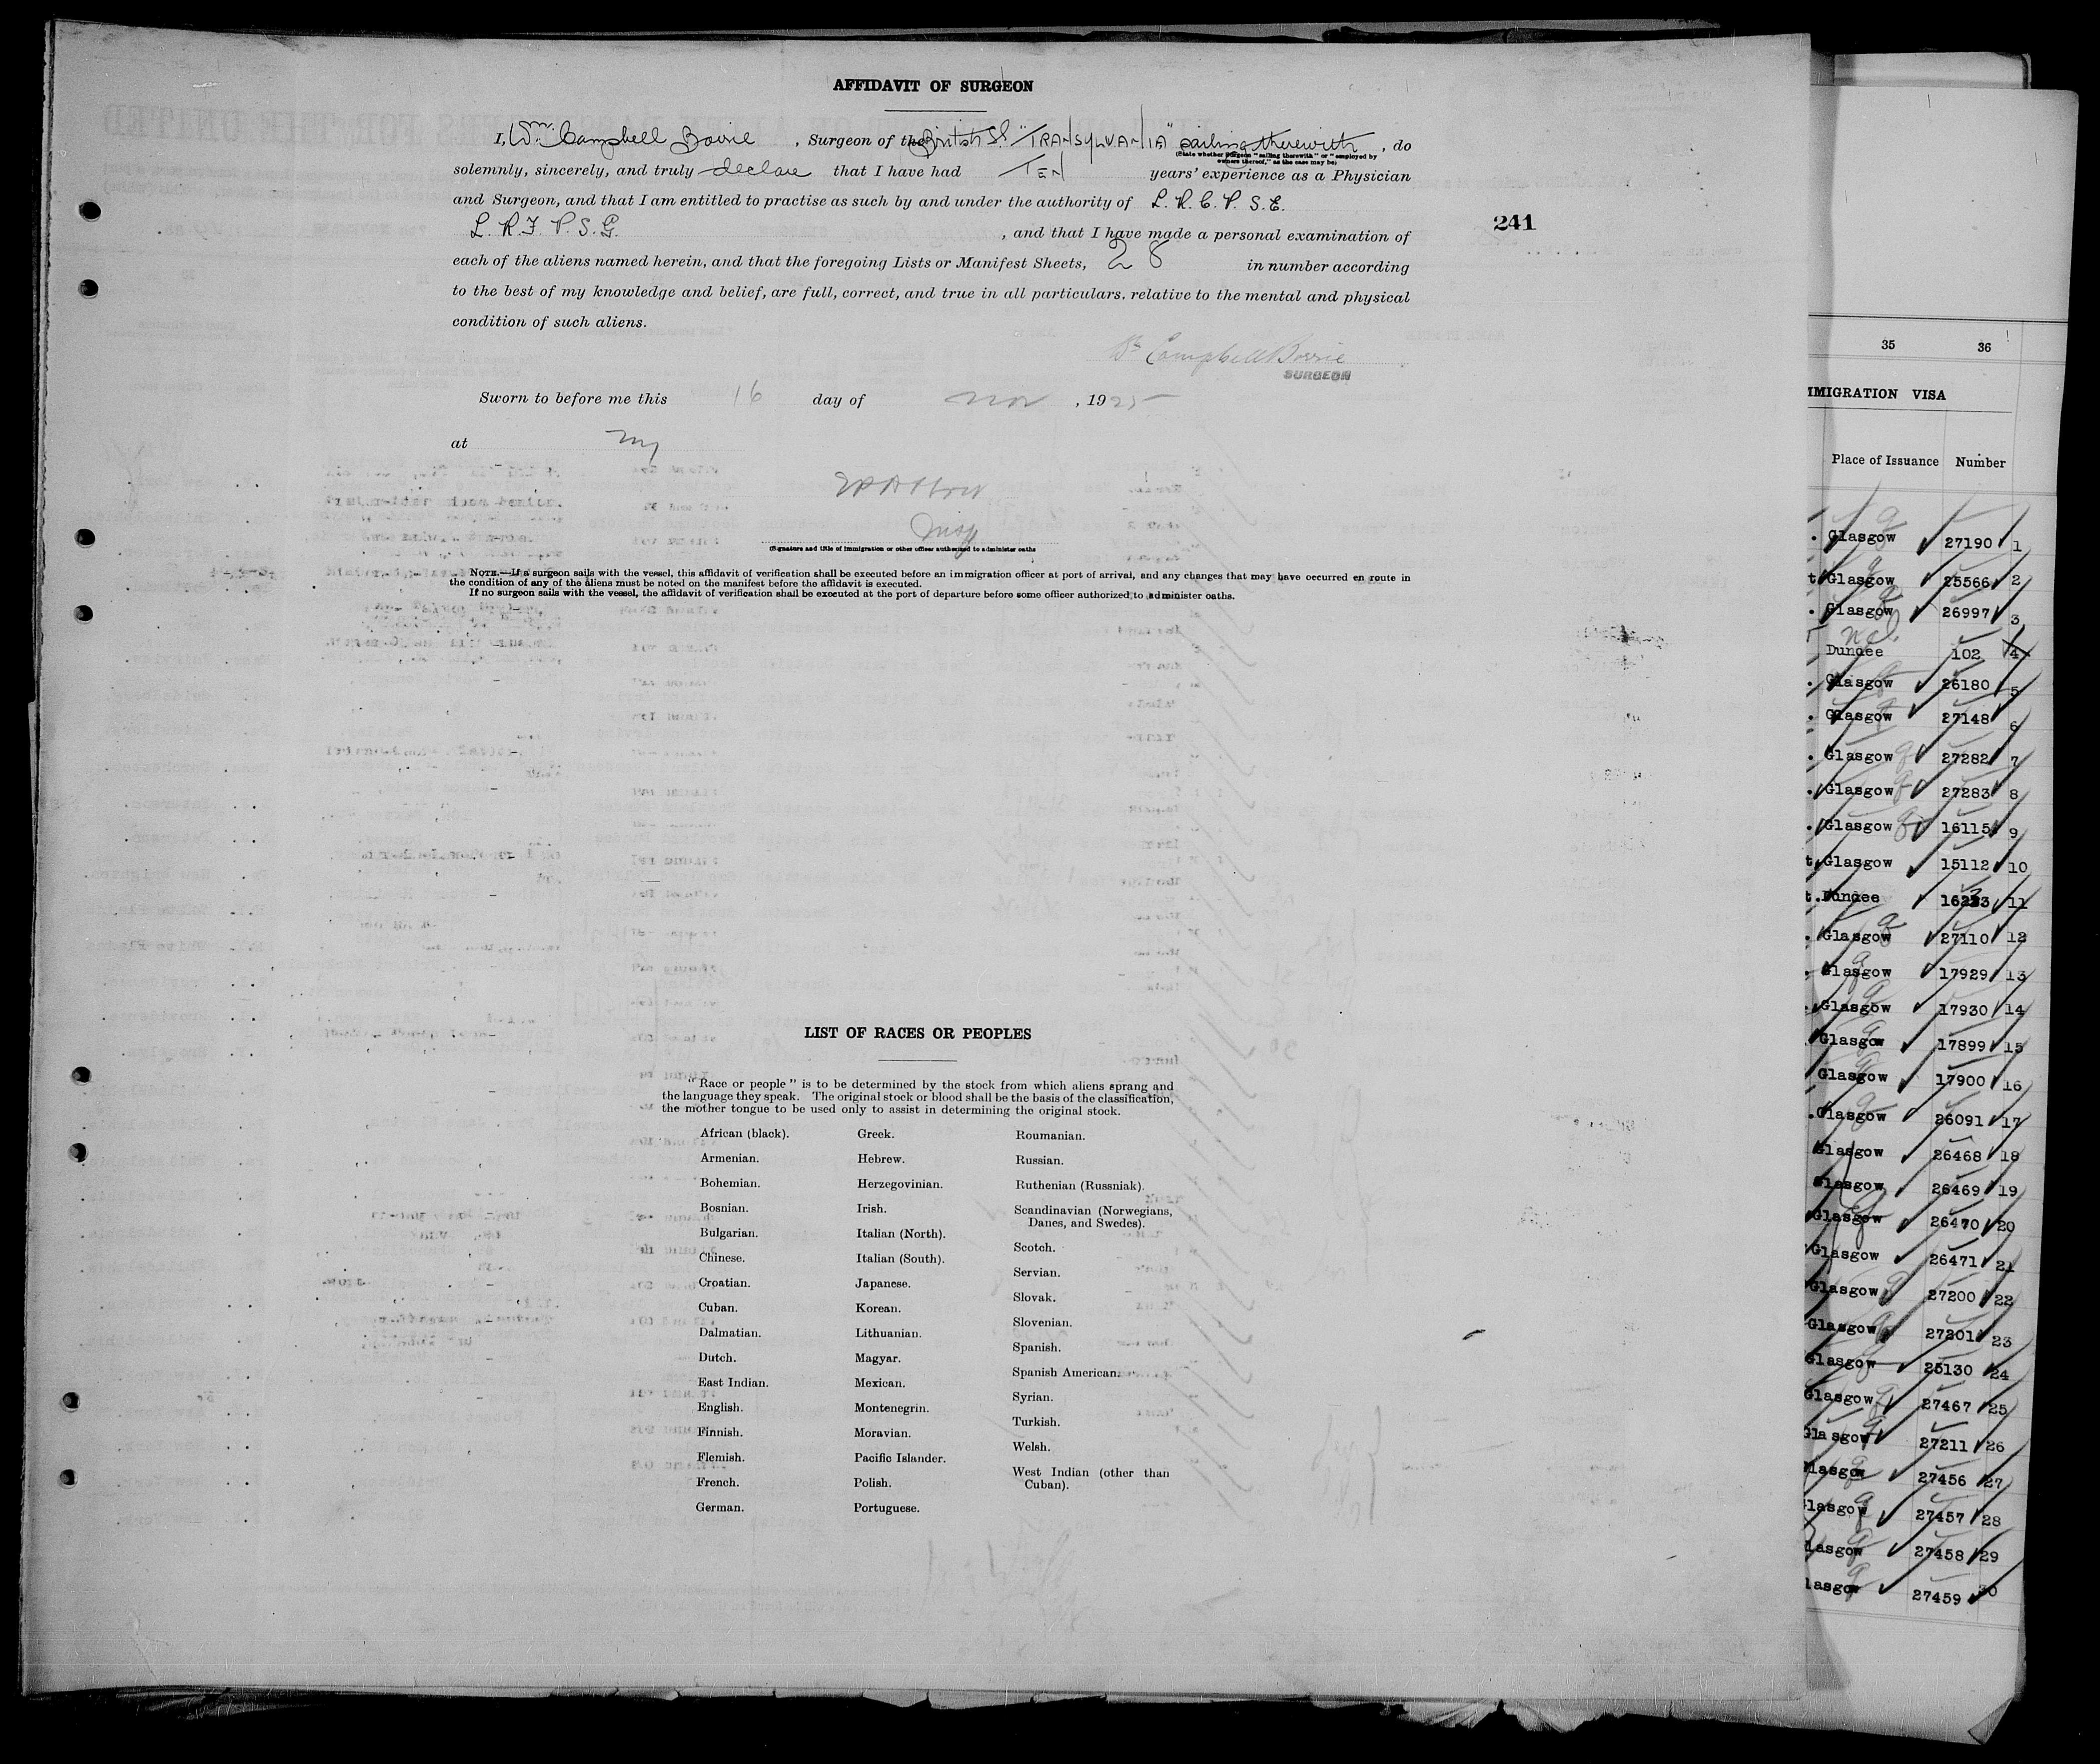 AFFIDAVIT OF SURGEON
I, Wm Campbell Borrie, Surgeon of the British SS "TRANSYLVANIA" sailing therewith, do
(State whether Surgeon "sailing therewith" or "employed by
owners thereof," as the case may be)
solemnly, sincerely, and truly declare that I have had TEN years' experience as a Physician
and Surgeon, and that I am entitled to practise as such by and under the authority of L.R.C.P.S.E.
L.R.F.P.S.G., and that I have made a personal examination of
241
each of the aliens named herein, and that the foregoing Lists or Manifest Sheets, 28 in number according
to the best of my knowledge and belief, are full, correct, and true in all particulars, relative to the mental and physical
condition of such aliens.
Wm Campbell Borrie
SURGEON
Sworn to before me this 16 day of Nov, 1925
at NY
Insp
(Signature and title of immigration or other officer authorized to administer oaths
NOTE.—If a surgeon sails with the vessel, this affidavit of verification shall be executed before an immigration officer at port of arrival, and any changes that may have occurred en route in
the condition of any of the aliens must be noted on the manifest before the affidavit is executed.
If no surgeon sails with the vessel, the affidavit of verification shall be executed at the port of departure before some officer authorized to administer oaths.
LIST OF RACES OR PEOPLES
"Race or people" is to be determined by the stock from which aliens sprang and
the language they speak. The original stock or blood shall be the basis of the classification,
the mother tongue to be used only to assist in determining the original stock.
African (black).
Armenian.
Bohemian.
Bosnian.
Bulgarian.
Chinese.
Croatian.
Cuban.
Dalmatian.
Dutch.
East Indian.
English.
Finnish.
Flemish.
French.
German.
Greek.
Hebrew.
Herzegovinian.
Irish.
Italian (North).
Italian (South).
Japanese.
Korean.
Lithuanian.
Magyar.
Mexican.
Montenegrin.
Moravian.
Pacific Islander.
Polish.
Portuguese.
Roumanian.
Russian.
Ruthenian (Russniak).
Scandinavian (Norwegians,
Danes, and Swedes).
Scotch.
Servian.
Slovak.
Slovenian.
Spanish.
Spanish American.
Syrian.
Turkish.
Welsh.
West Indian (other than
Cuban).
35 36
MMIGRATION VISA
Place of Issuance Number
Glasgow 27190 1
Glasgow 25566 2
Glasgow 26997 3
Dundee 102 4
Glasgow 26180 5
Glasgow 27148 6
Glasgow 27282 7
Glasgow 27283 8
Glasgow 16115 9
Glasgow 15112 10
Dundee 11
Glasgow 27110 12
Glasgow 17929 13
Glasgow 17930 14
Glasgow 17899 15
Glasgow 17900 16
Glasgow 26091 17
Glasgow 26468 18
Glasgow 26469 19
Glasgow 26470 20
Glasgow 26471 21
Glasgow 27200 22
Glasgow 27201 23
Glasgow 25130 24
Glasgow 27467 25
Glasgow 27211 26
lasgow 27456 27
lasgow 27457 28
lasgow 27458 29
lasgow 27459 30